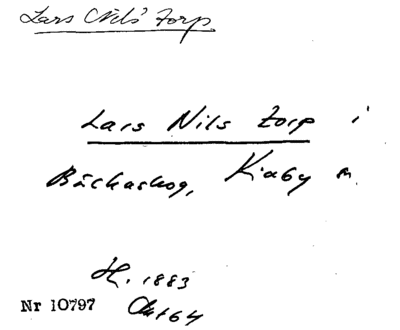 Lars Nils Torp
Lars Nils Torp i
Bäckaskog, Kiaby sn.
H. 1883
Nr 10797